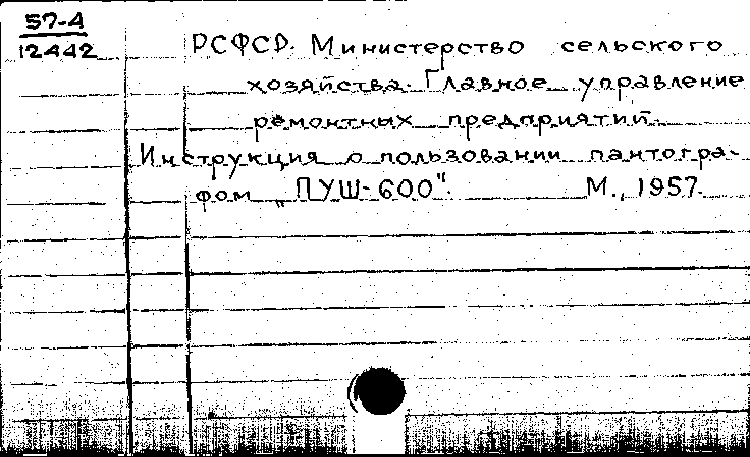 57-4
12442
РСФСР. Министерство сельского
хозяйства. Главное управление
ремонтных предприятий.
Инструкция о пользовании пантогра-
фом „ПУШ-600".
М., 1957.